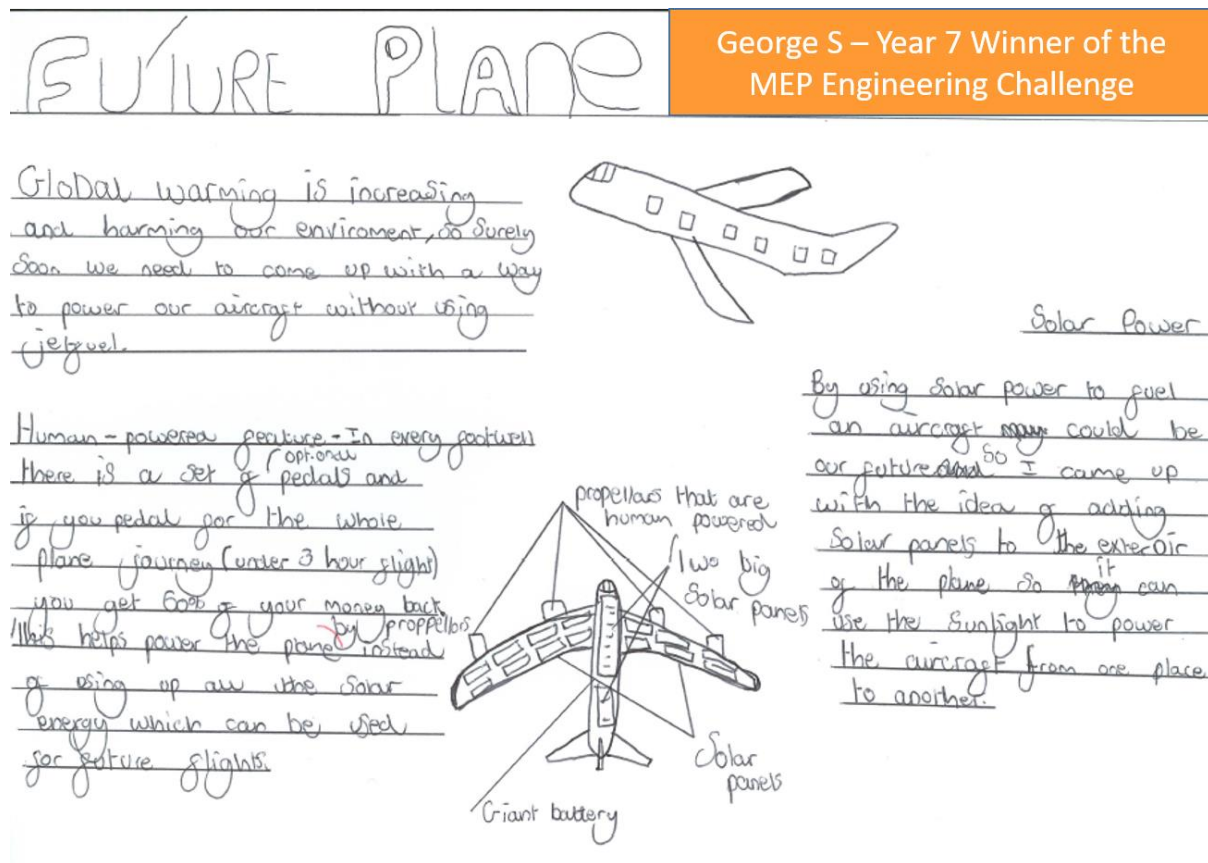 FUTURE PLANE
George S – Year 7 Winner of the
MEP Engineering Challenge
Global warming is increasing
and harming our enviroment, so surely
soon we need to come up with a way
to power our aircraft without using
jetfuel.
Human-powered feature - In every footwell
there is a set of optional pedals and
if you pedal for the whole
plane journey (under 3 hour flight)
you get 60% of your money back.
This helps power the plane by proppellors instead
of using up all the solar
energy which can be used
for future flights.
Solar Power
By using solar power to fuel
an aircraft could be
our future so I came up
with the idea of adding
solar panels to the exteroir
of the plane so it can
use the sunlight to power
the aircraft from one place
to another.
propellars that are
human powered
Two big
solar panels
Solar
panels
Giant battery